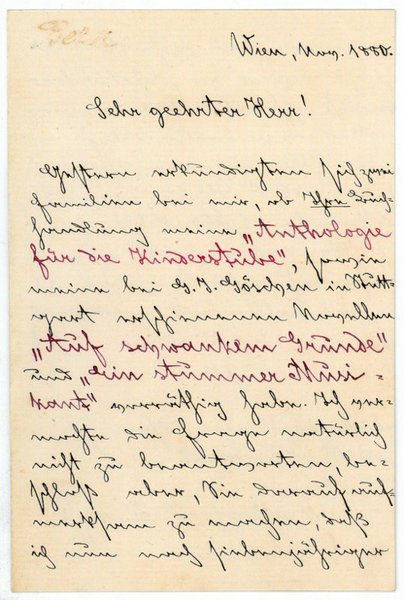 Wien, Nov. 1880.
Sehr geehrter Herr!
Gestern erkundigten sich zwei
Familien bei mir, ob Ihre Buch-
handlung meine „Anthologie
für die Kinderstube", sowie
meine bei G. J. Göschen in Stutt-
gart erschienenen Novellen
„Auf schwankem Grunde"
und „Ein stummer Musi-
kant" vorräthig habe. Ich ver-
mochte die Frage natürlich
nicht zu beantworten, be-
schloß aber, Sie darauf auf-
merksam zu machen, daß
ich nun nach siebenjähriger